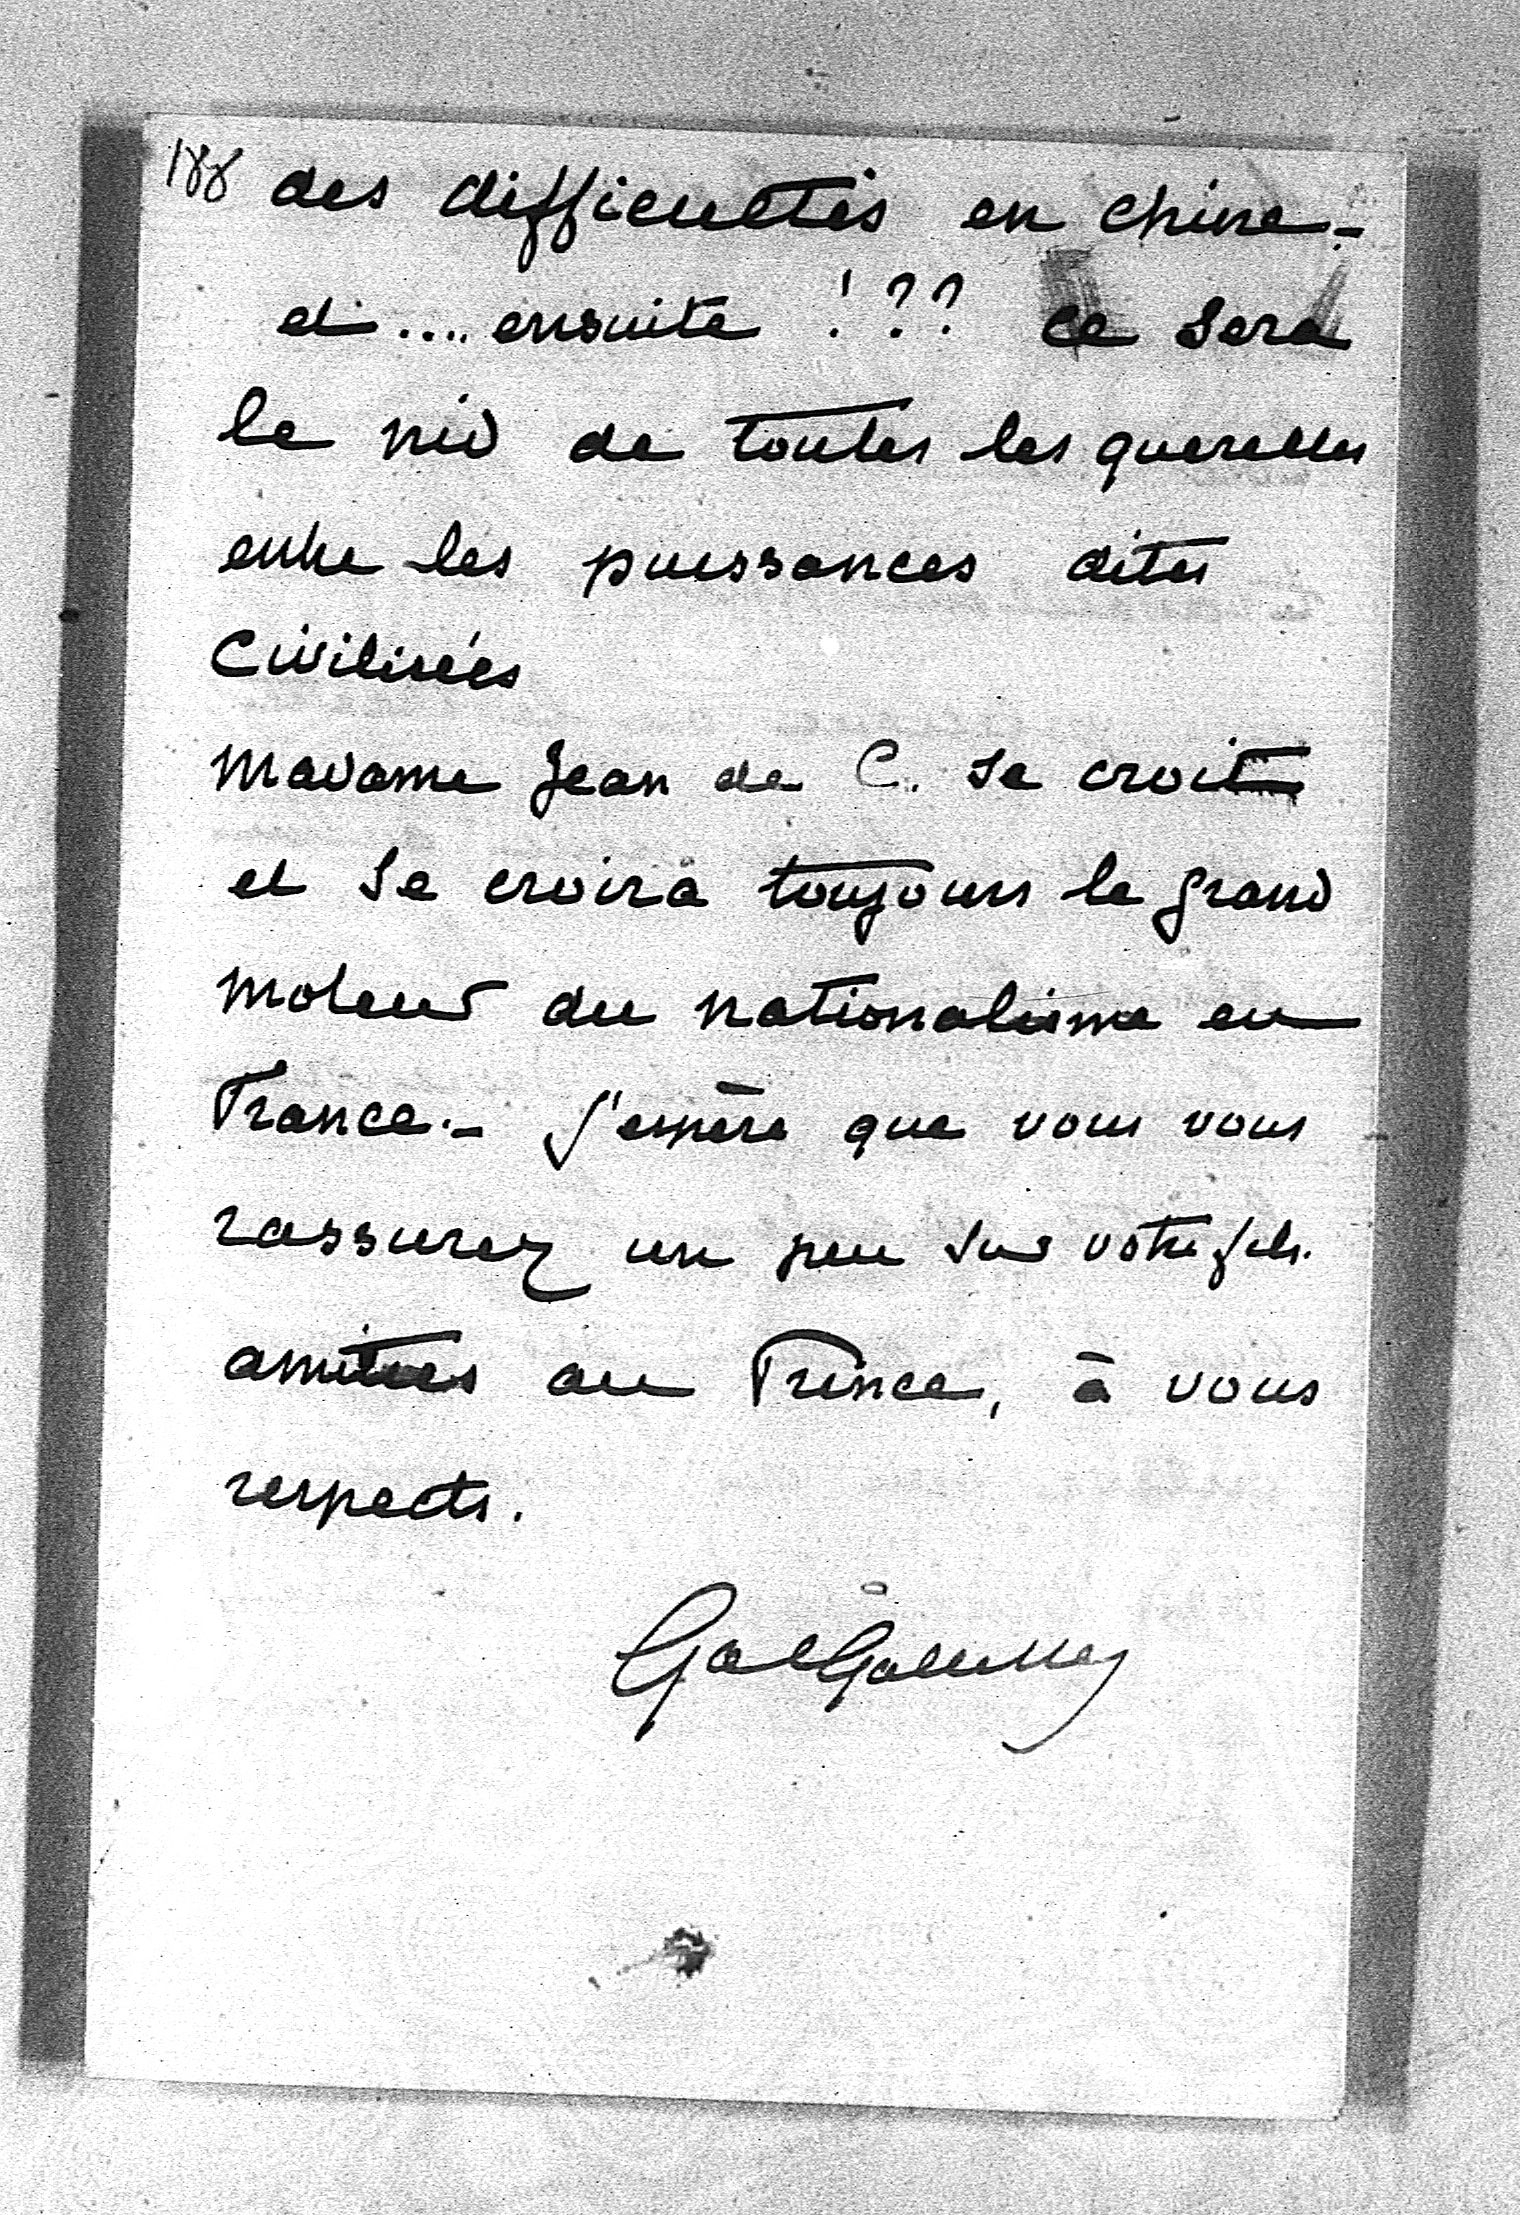 188 des difficultés en chine.-
et .... ensuite !?? ce sera
le nid de toutes les querelles
entre les puissances dites
civilisées
Madame Jean de C. se croit
et se croira toujours le grand
moteur du nationalisme en
France.- J'espère que vous vous
rassurez un peu sur votre fils.
amitiés au Prince, à vous
respects.